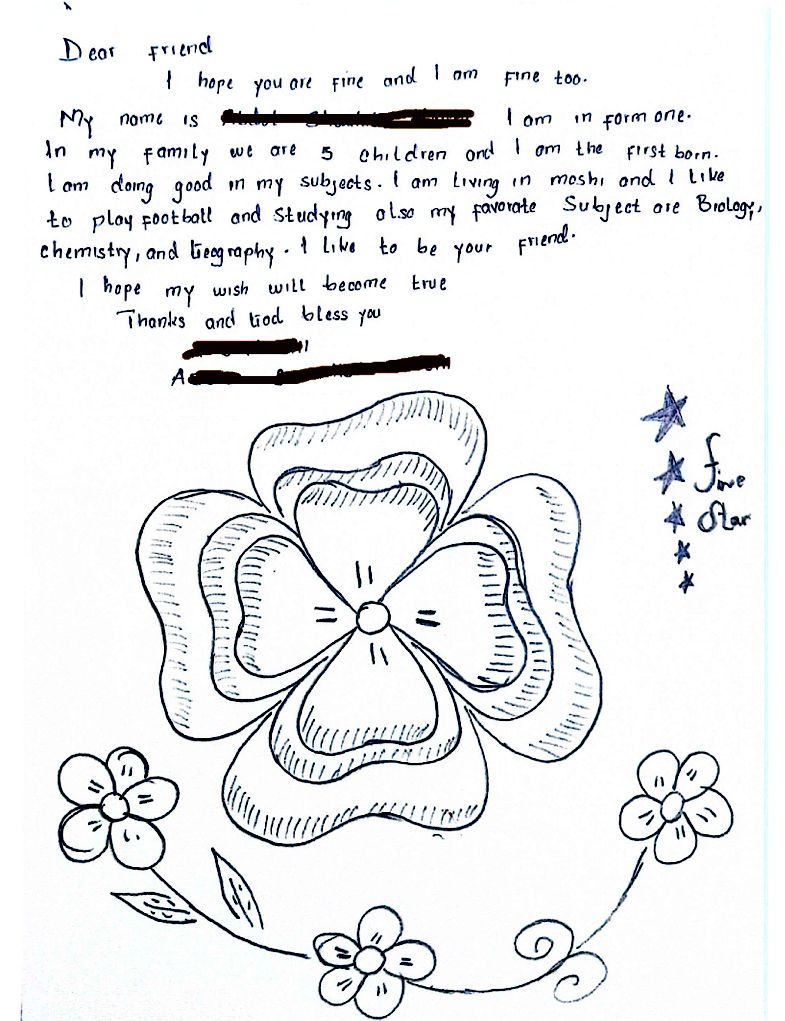 Dear friend
I hope you are fine and I am fine too.
My name is I am in form one.
In my family we are 5 children and I am the first born.
I am doing good in my subjects. I am living in moshi and I like
to play football and studying also my favorate Subject are Biology,
chemistry, and Geography. I like to be your friend.
I hope my wish will become true
Thanks and God bless you
A
five
Star